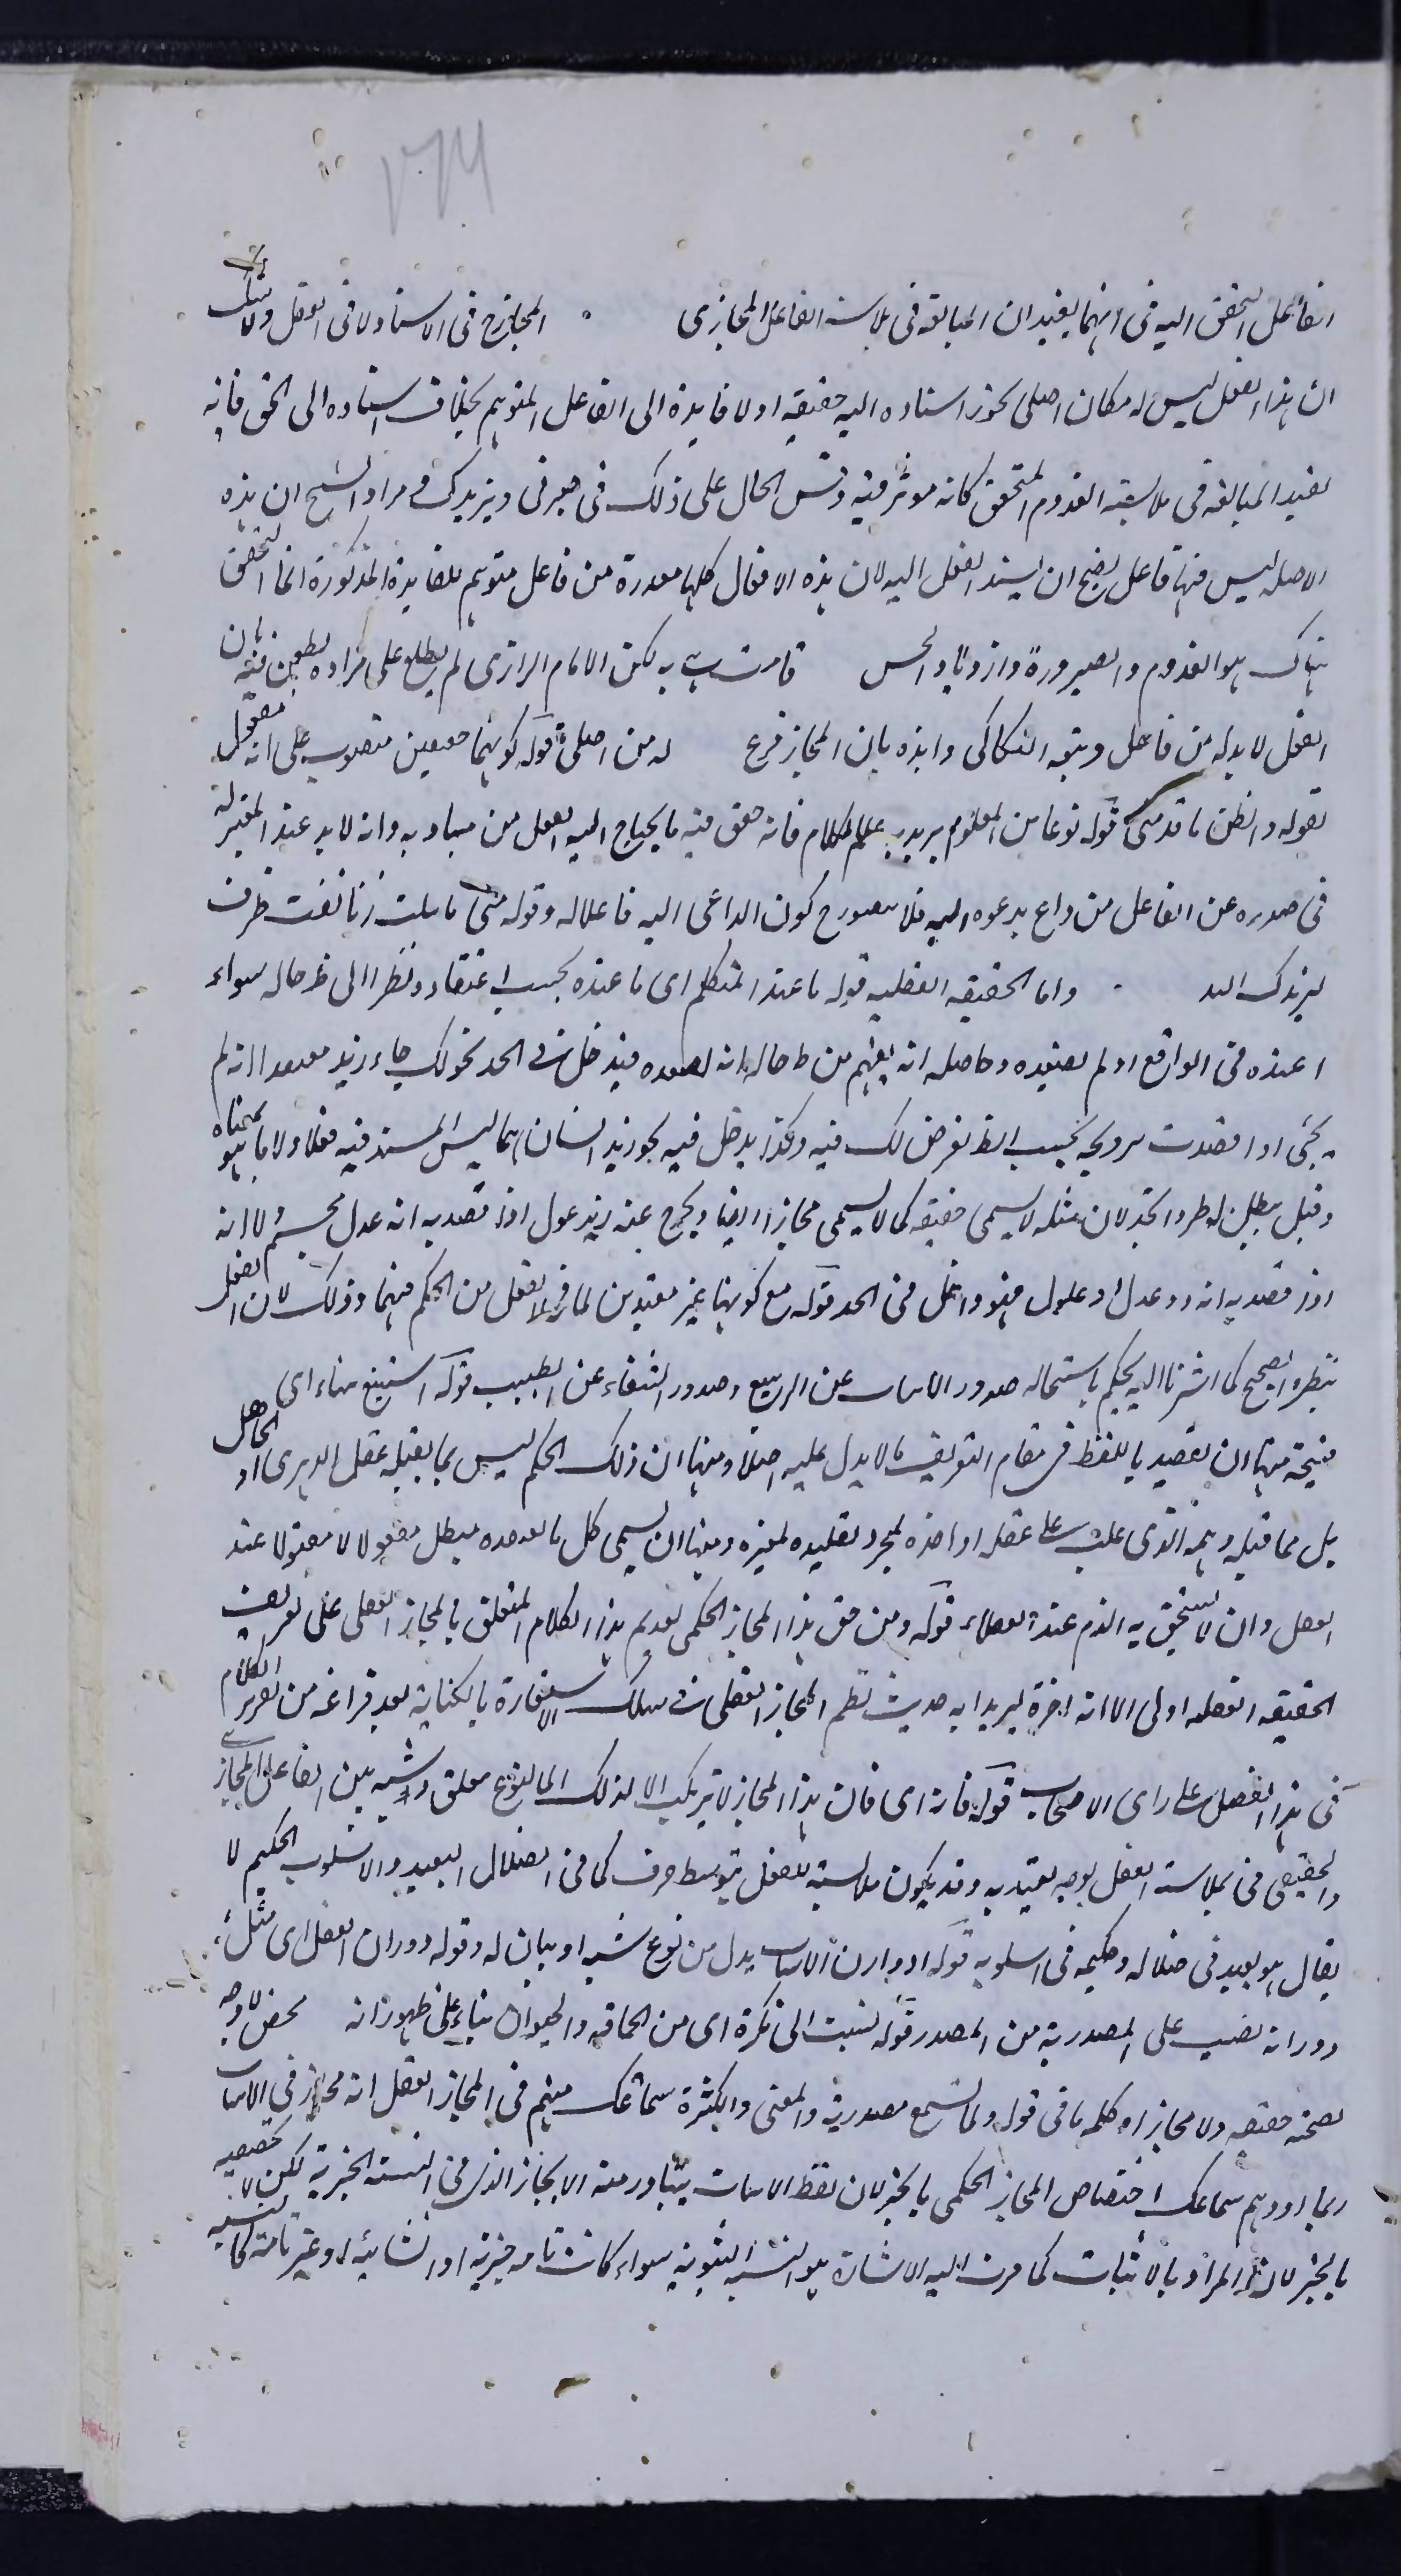 ۲۶۴
الفاعل المحقق اليه فى انهما يفيدان المبالغه فى ملابسة الفاعل المجازى المجاز ح فى الاسناد لا فى العقل ولا شك
ان هذا الفعل ليس له مكان اصلى يجوز اسناده اليه حقيقه اولا فايدة الى الفاعل المتوهم بخلاف اسناده الى الحق فانه
يفيد المبالغه فى ملابسته القدوم المتحقق كانه موثر فيه وقس الحال على ذلك فى صيرنى ويزيدك فمراد الشيخ ان هذه
الامثله ليس فيها فاعل يصح ان يسند الفعل اليه لان هذه الافعال كلها مصدرة من فاعل متوهم للفايدة المذكورة انما المتحقق
هناك هو القدوم والصيرورة وازدياد الحسن لكن الامام الرازى لم يطلع على مراده فطعن فيه بان
الفعل لا بد له من فاعل وتبعه السكاكى وايده بان المجاز فرع له من اصلى قوله كونهما حقيقيين منصوب على انه مفعول
لقوله والظن ما قد مر قوله نوعا من العلوم يريد به علم الكلام فانه حقق فيه ما يحتاج اليه الفعل من مباديه وانه لا بد عند المعتزلة
فى صدوره عن الفاعل من داع يدعوه اليه فلا يتصور ح كون الداعى اليه فاعلا له وقوله متى ما تأملت زمانا نصف ظرف
ليزيدك اليه واما الحقيقه العقليه قوله ما عند المتكلم اى ما عنده بحسب اعتقاده ونظرا الى ظ حاله سواء
اعتقده فى الواقع او لم يعتقده وحاصله انه يفهم من ظ حاله انه يعتقده فيدخل فى الحد نحو قولك جاء زيد معتقدا انه لم
يجئ اذا قصدت ترويجه بحسب الظ لغرض لك فيه وهكذا يدخل فيه نحو زيد انسان مما ليس المسند فيه فعلا ولا ما هو بمعناه
وقيل يبطل به طرد الحد لان مثله لا يسمى حقيقه كما لا يسمى مجازا ايضا ويخرج عنه زيد عدل اذا قصد به انه عدل مجسم لا انه
اذا قصد به انه ذو عدل او عادل فهو داخل فى الحد قوله مع كونها غير مفيدين لما فى العقل من الحكم فيهما وذلك لان العقل
بنظره الصحيح كما اشرنا اليه يحكم باستحاله صدور الانبات عن الربيع وصدور الشفاء عن الطبيب قوله استتبع اشياء اى
قبيحه منها ان يقصد باللفظ فى مقام التعريف ما لا يدل عليه اصلا ومنها ان ذلك الحكم ليس بما يقبله عقل الدهرى او الجاهل
بل مما قبله وهمه الذى غلب على عقله او اخذه لمجرد تقليده لغيره ومنها ان يسمى كل ما يعتقده مبطل معقولا لا مقبولا عند
العقل وان لا يستحق به الذم عند العقلاء قوله ومن حق هذا المجاز الحكمى تقديم هذا الكلام المتعلق بالمجاز العقلى على تعريف
الحقيقه العقليه اولى الا انه اخره ليريد به حديث نظم المجاز العقلى فى سلك الاستعارة بالكناية بعد فراغه من تقرير الكلام
فى هذا الفصل على راى الاصحاب قوله فانه اى فان هذا المجاز لا يرتكب الا لذلك اى لنوع تعلق وشبه بين الفاعل المجازى
والحقيقى فى ملابسة الفعل بوجه يعتد به وقد يكون ملابسته للفعل بتوسط حرف كما فى الضلال البعيد والاسلوب الحكيم لا
يقال هو بعيد فى ضلاله وحكيم فى اسلوبه قوله او دوران الاسباب بدل من نوع شبه او بيان له وقوله دوران الفعل اى مثل
دورانه نصب على المصدرية من المصدر قوله نسبت الى نكرة اى من الحماقه والحيوان بناء على ظهور انه محض لا وجه
لصحته حقيقه ولا مجازا وكلمه ما فى قوله ولما تسمع مصدرية والمعنى والكثرة سماعك منهم فى المجاز العقلى انه مجاز فى الاثبات
ربما اوهم سماعك اختصاص المجاز الحكمى بالخبر لان لفظ الاثبات يتبادر منه الايجاز الذى فى النسبة الخبرية لكن لا تخصيصه
بالخبر لان المراد بالاثبات كما مرت اليه الاشارة هو النسبه الثبوتيه سواء كانت تامه خبرية او انشائيه او غير تامه كما لنسبة